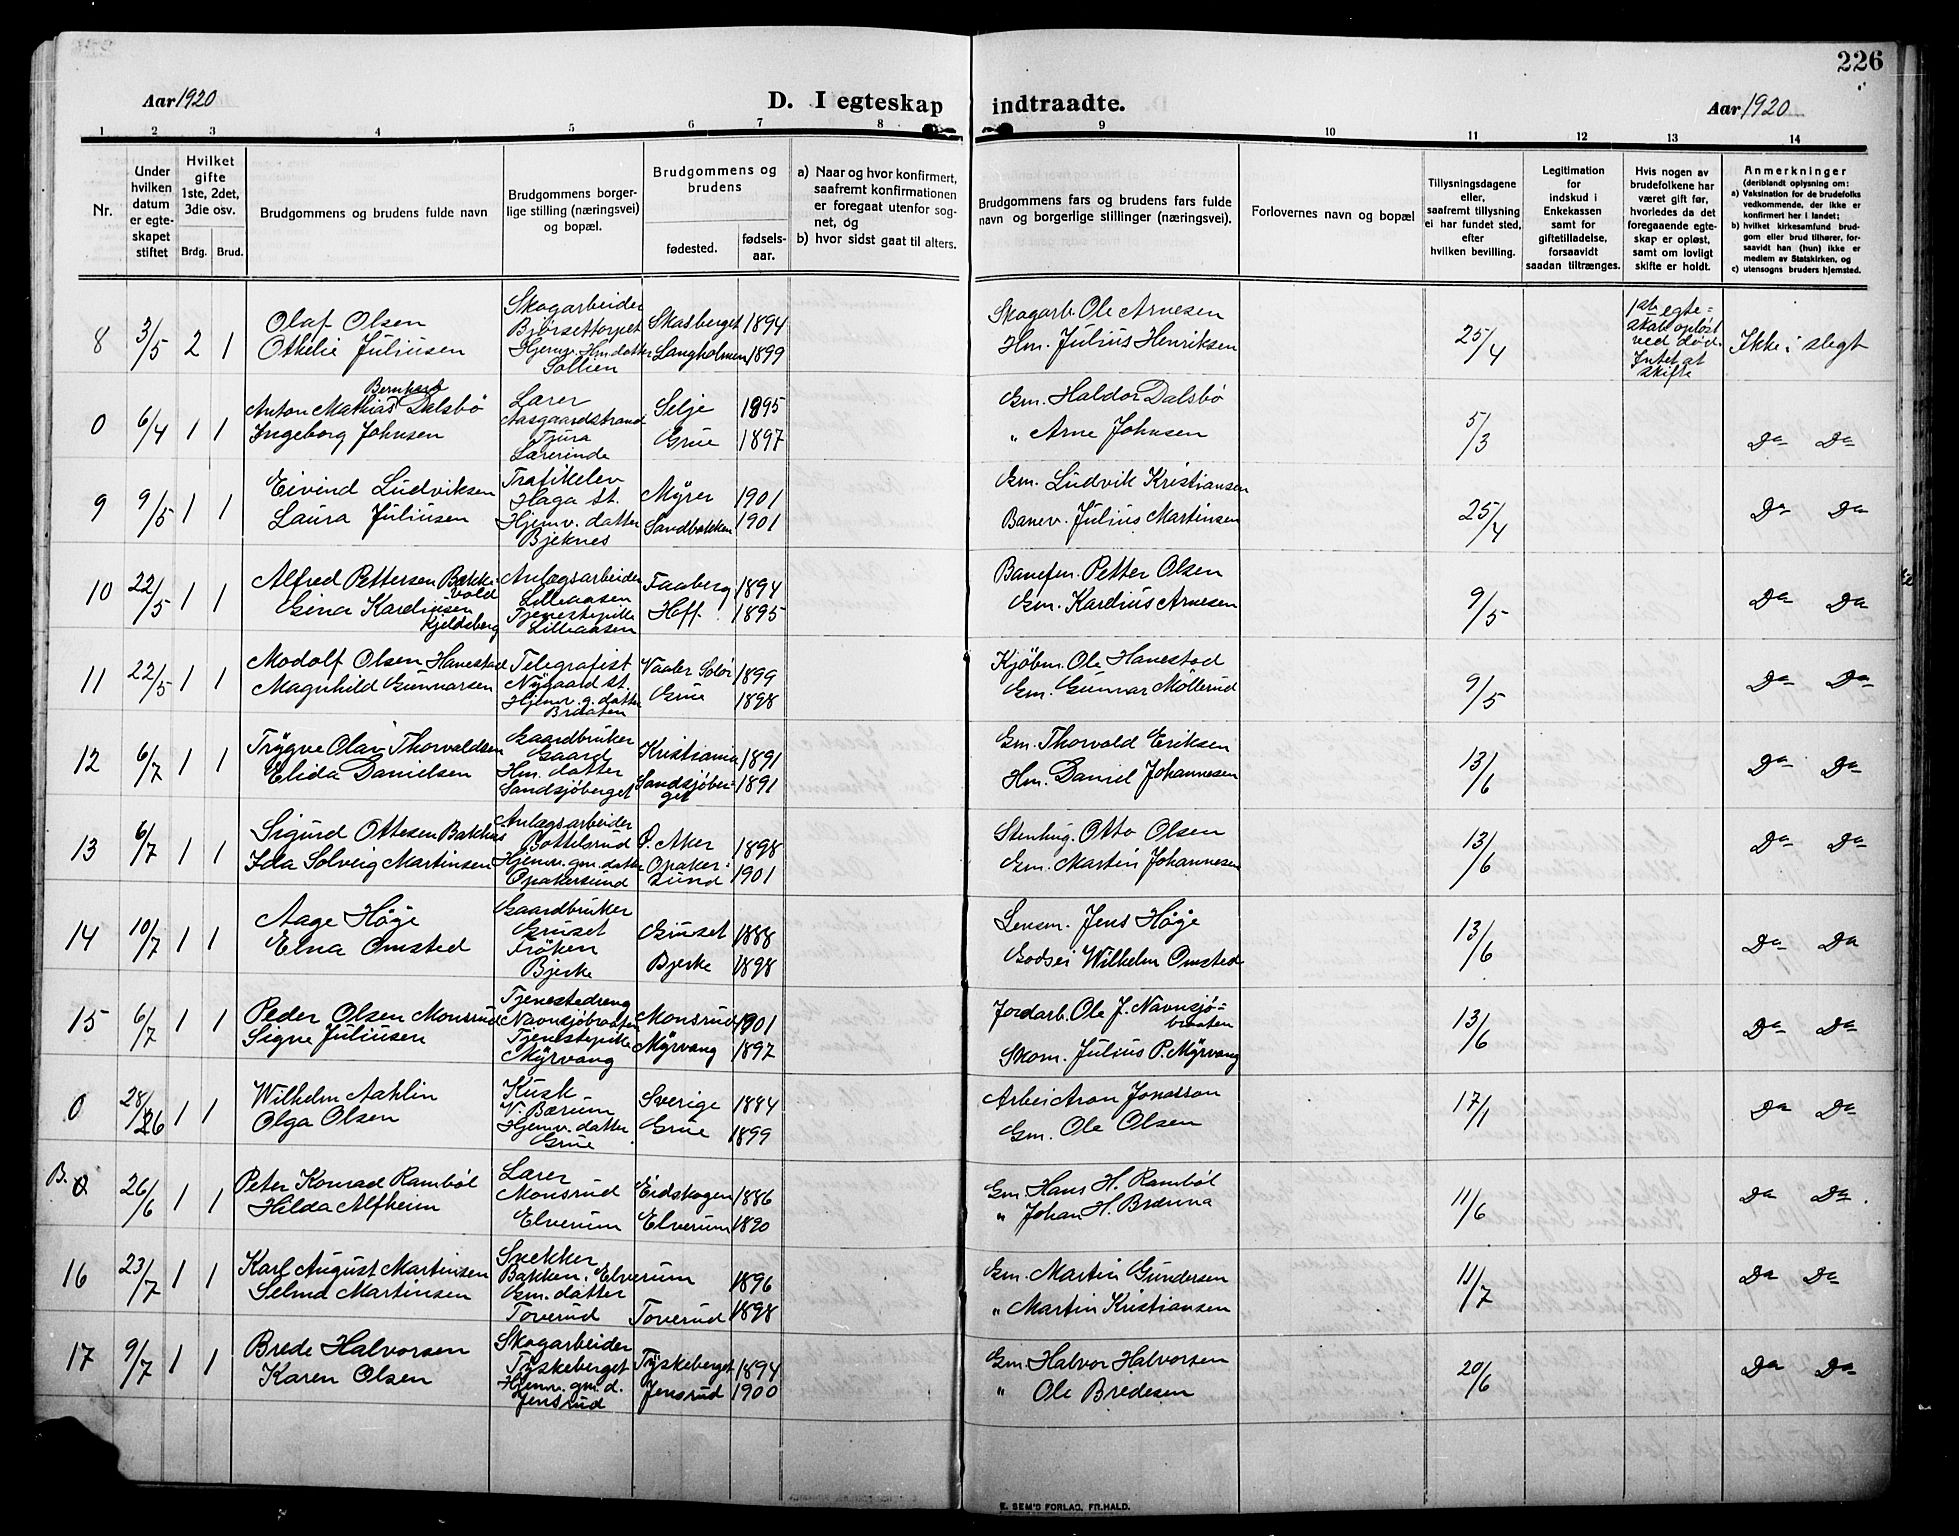 226
Aar 1920
D. I egteskap indtraadte.
Aar 1920
1 2 3 4 5 6 7 8 9 10 11 12 13 14
Nr.
Under hvilken datum er egteskapet stiftet
Hvilket gifte 1ste, 2det, 3die osv.
Brdg. Brud.
Brudgommens og brudens fulde navn
Brudgommens borgerlige stilling (næringsvei) og bopæl.
Brudgommens og brudens
fødested.
fødselsaar.
a) Naar og hvor konfirmert, saafremt konfirmationen er foregaat utenfor sognet, og
b) hvor sidst gaat til alters.
Brudgommens fars og brudens fars fulde navn og borgerlige stillinger (næringsvei).
Forlovernes navn og bopæl
Tillysningsdagene eller, saafremt tillysning ei har fundet sted, efter hvilken bevilling.
Legitimation for indskud i Enkekassen samt for giftetilladelse, forsaavidt saadan tiltrænges.
Hvis nogen av brudefolkene har været gift før, hvorledes da det foregaaende egteskap er opløst, samt om lovligt skifte er holdt.
Anmerkninger
(deriblandt oplysning om:
a) Vaksination for de brudefolks vedkommende, der ikke er konfirmert her i landet;
b) hvilket kirkesamfund brudgom eller brud tilhører, forsaavidt han (hun) ikke er medlem av Statskirken, og
c) utensogns bruders hjemsted.
8 3/5 2 1 Olaf Olsen Skogarbeider Bjørsettorpet Skasberget 1894 Skogarb. Ole Arnesen 25/4 1ste egteskab opløst ved død. Intet at skifte Ikke i slegt
Othelie Juliusen Hjemv. Hm. datter Sollien Langholmen 1899 Hm. Julius Henriksen
0 6/4 1 1 Anton Mathias Bernhard Dalsbø Lærer Aasgaardstrand Selje 1895 Gm. Haldor Dalsbø 5/3 Da Da
Ingeborg Johnsen Tjura Lærerinde Grue 1897 " Arne Johnsen
9 9/5 1 1 Eivind Ludviksen Trafikelev Haga st. Myrer 1901 Gm. Ludvik Kristiansen 25/4 Da Da
Laura Juliusen Hjemv. datter Bjeknes Sandbakken 1901 Banev. Julius Martinsen
10 22/5 1 1 Alfred Pettersen Bakkevold Anlægsarbeider Lilleaasen Faaberg 1894 Banefm. Petter Olsen 9/5 Da Da
Gina Kardiusen Kjeldsberg Tjenestepike Lilleaasen Hoff 1895 Gm. Kardius Arnesen
11 22/5 1 1 Modolf Olsen Hanestad Telegrafist Nygaard st. Vaaler Solør 1899 Kjøbm. Ole Hanestad 9/5 Da Da
Magnhild Gunnarsen Hjemv. g. datter Braaten Grue 1898 Gm. Gunnar Møllerud
12 6/7 1 1 Trygve Olav Thorvaldsen Gaardbruker Gaard Kristiania 1891 Gm. Thorvald Eriksen 13/6 Da Da
Elida Danielsen Hm. datter Sandsjøberget Sandsjøberget 1891 Hm. Daniel Johannesen
13 6/7 1 1 Sigurd Ottesen Bakkhus Anlægsarbeider Bottelsrud Ø. Aker 1898 Stenhug. Otto Olsen 13/6 Da Da
Ida Solveig Martinsen Hjemv. gm. datter Opakersund Opakersund 1901 Gm. Martin Johannesen
14 10/7 1 1 Aage Høje Gaardbruker Gruset Gruset 1888 Lensm. Jens Høje 13/6 Da Da
Elna Omsted Frøken Bjerke Bjerke 1898 Godsei Wilhelm Omsted
15 6/7 1 1 Peder Olsen Monsrud Tjenestedreng Navnsjøbraaten Monsrud 1901 Jordarb. Ole J. Navnsjøbraaten 13/6 Da Da
Signe Juliusen Tjenestepike Myrvang Myrvang 1897 Skom. Julius P. Myrvang
0 28/26 1 1 Wilhelm Aahlin Kusk V. Bærum Sverige 1884 Arbei Aron Jonasson 17/1 Da Da
Olga Olsen Hjemv. datter Grue Grue 1899 Gm. Ole Olsen
B. 0 26/6 1 1 Peter Konrad Rambøl Lærer Monsrud Eidskogen 1886 Gm. Hans H. Rambøl 11/6 Da Da
Hilda Alfheim Elverum Elverum 1890 " Johan H. Brænna
16 23/7 1 1 Karl August Martinsen Snekker Bakken, Elverum 1896 Gm. Martin Gundersen 11/7 Da Da
Selma Martinsen Gm. datter Toverud Toverud 1898 " Martin Kristiansen
17 9/7 1 1 Brede Halvorsen Skogarbeider Tyskeberget Tyskeberget 1894 Gm. Halvor Halvorsen 20/6 Da Da
Karen Olsen Hjemv. gm. d. Jensrud Jensrud 1900 " Ole Bredesen
E. SEM'S FORLAG, FR.HALD.